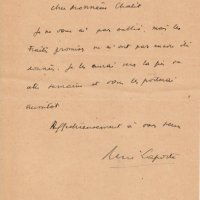 cher Monsieur Chalit
Je ne vous ai pas oublié, mais les
traités promis ne m'ont pas encore été
donnés. Je les aurai vers la fin de
la semaine et vous les posterai
aussitôt
Affectueusement à vous deux
René Laporte